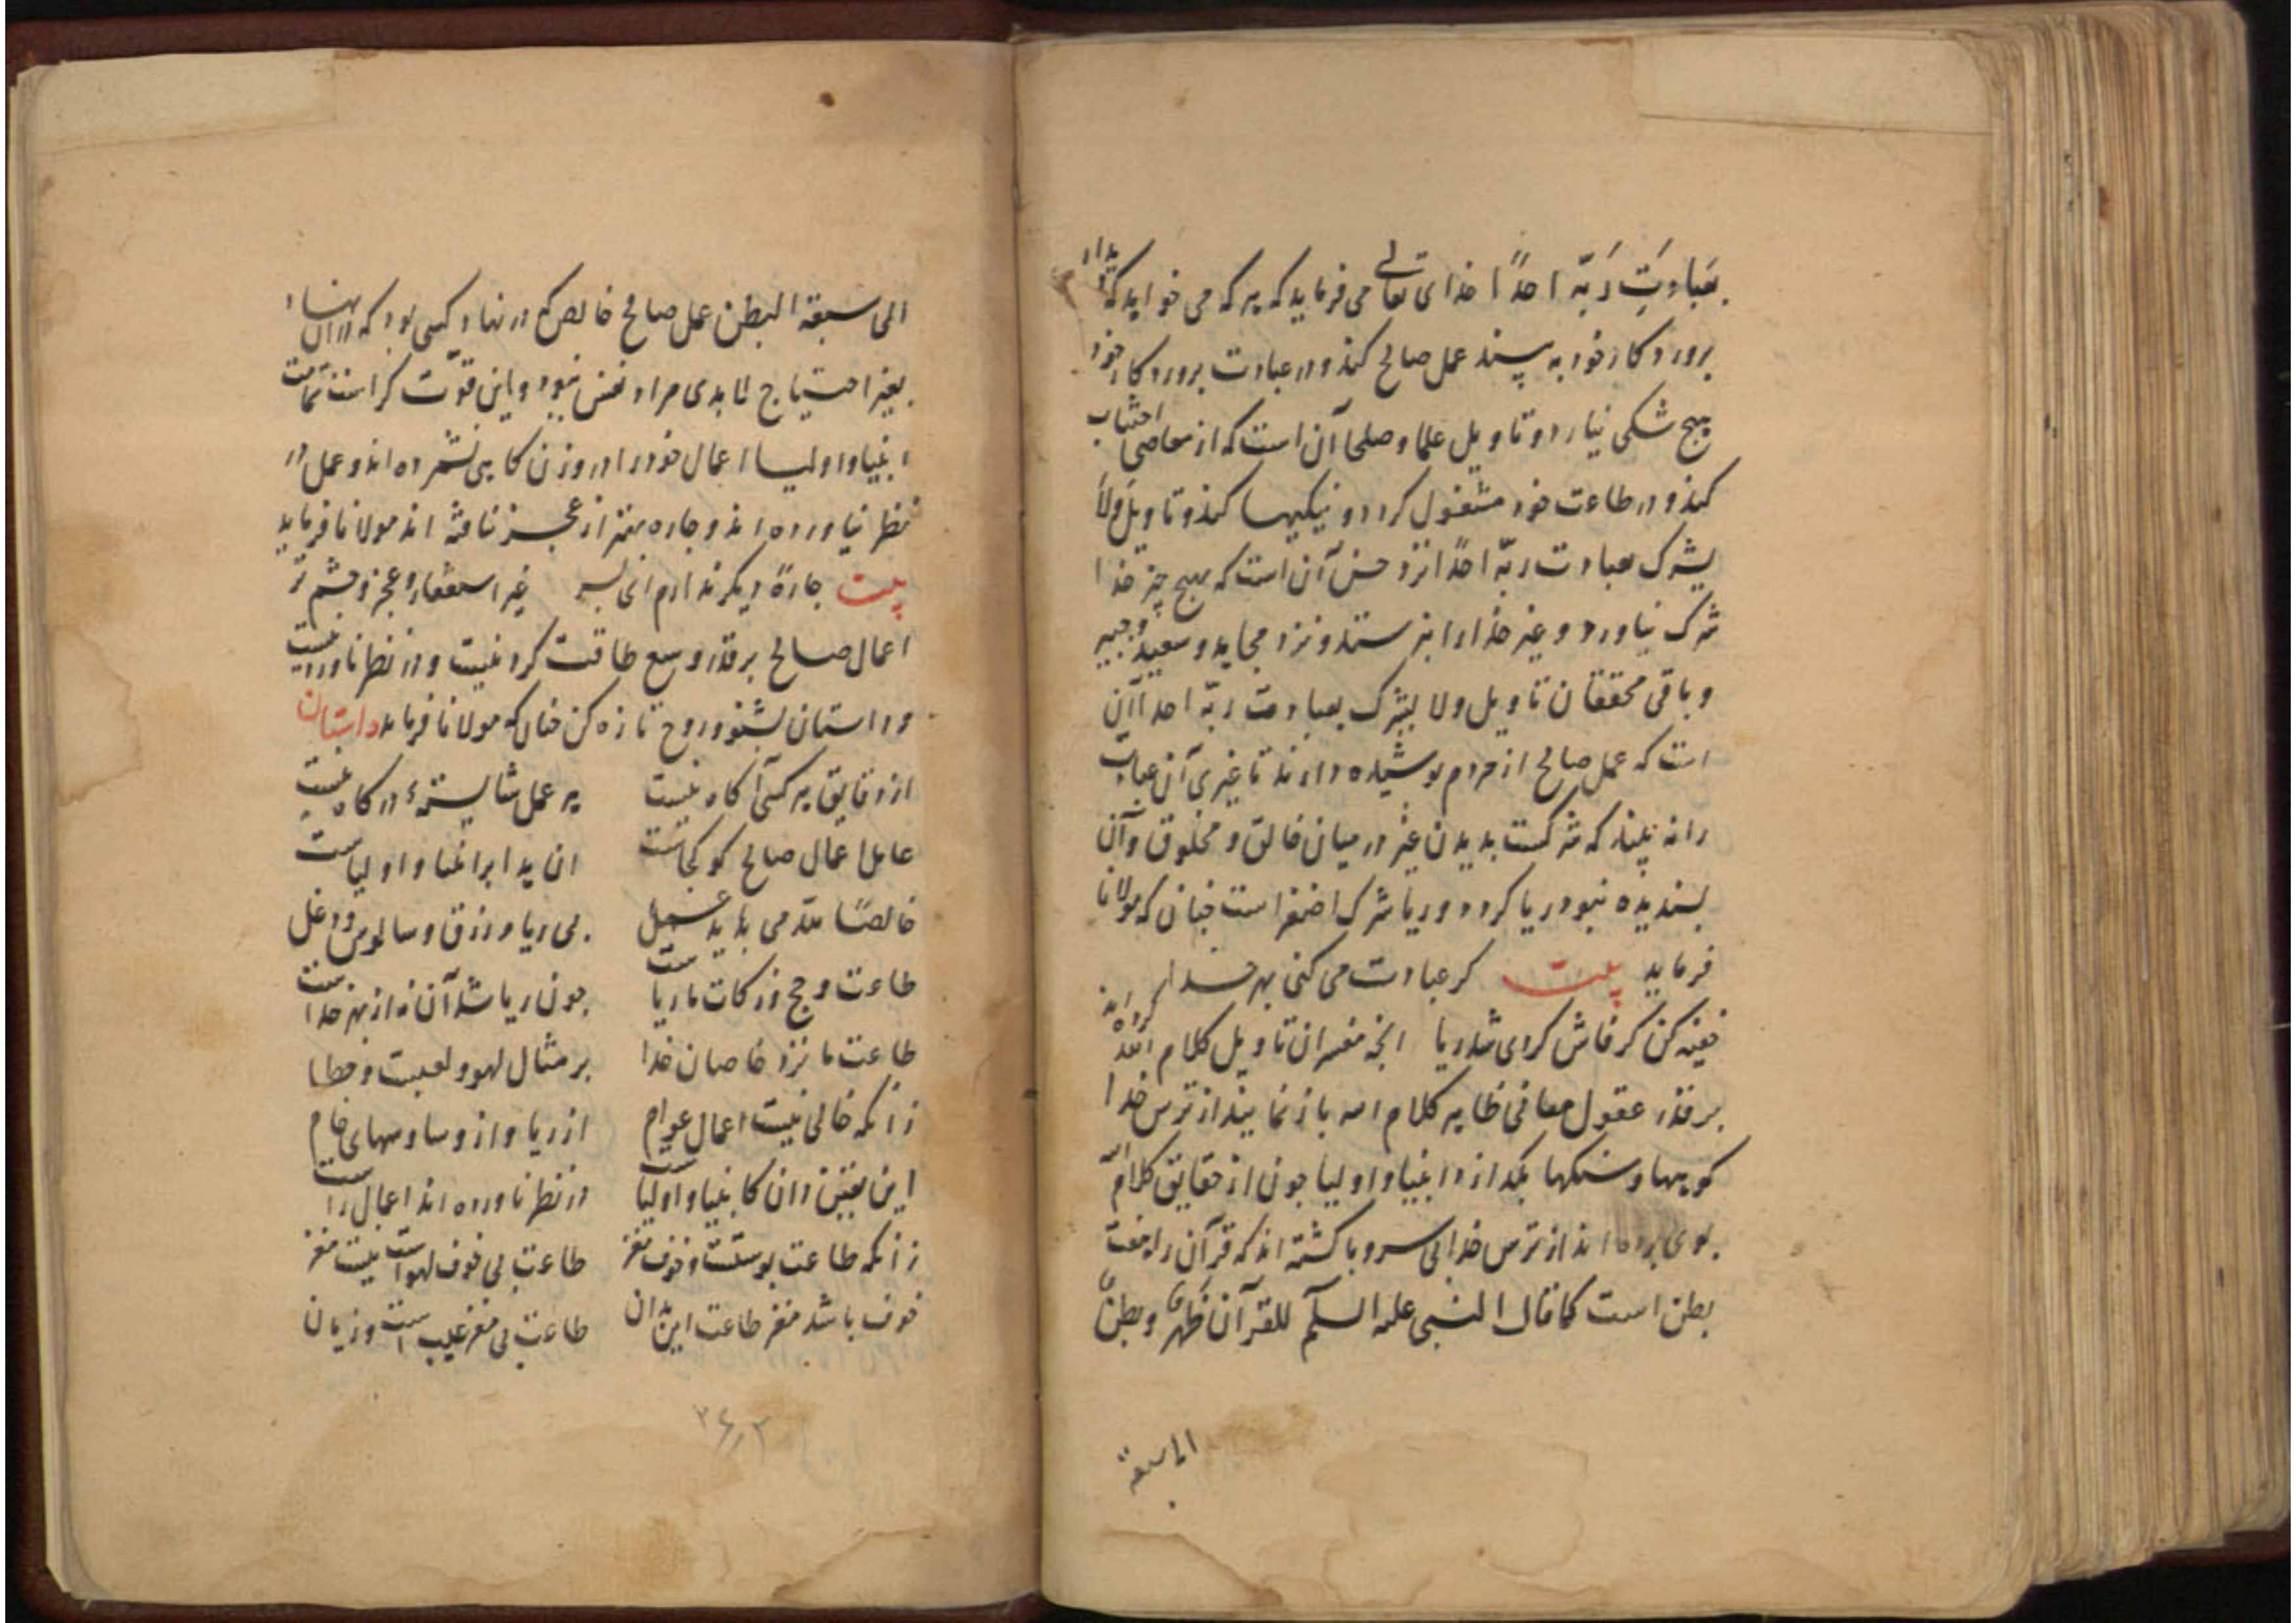 بعبادت ربّه احدًا خدای تعالی می فرماید که هر که می خواهد که دیدار
پروردکار خود به بیند عمل صالح کند و در عبادت پروردکار خود
هیچ شکی نیارد و تاویل علما و صلحا آن است که از معاصی اجتناب
کند و در طاعت خود مشغول کردد و نیکیها کند و تاویل ولا
یشرک بعبادت ربّه احدًا نزد حسن آن است که هیچ چیز خدا
شرک نیاورد و غیر خدا را نپرستد و نزد مجاهد و سعید و جبیر
و باقی محققان تاویل ولا یشرک بعبادت ربّه احدا آن
است که عمل صالح از مردم پوشیده دارند تا غیری آن عبادت
را نه بیند که شرکست بدیدن غیر در میان خالق و مخلوق و آن
پسندیده نبود ریا کردد و ریا شرک اصغر است چنان که مولانا
فرماید بیت کر عبادت می کنی بهر خدا
خفیه کن کر فاش کردی شد ریا انچه مفسران تاویل کلام الله کرده اند
بر قدر عقول معانی ظاهر کلام الله باز نمایند از ترس خدا
کوهها و سنکها بکدازد انبیا و اولیا چون از حقایق کلام الله
بوی برده اند از ترس خدا بی سر و پا کشته اند که قرآن را هفت
بطن است کما قال النبی علیه السلم للقرآن ظهرٌ و بطنٌ
الی سبعة
الی سبعة البطن عمل صالح خالص که در نهاد کسی بود که در آن نهاد
بغیر احتیاج لابدی مراد نفس نبود و این قوّت کراست تمامت
انبیا و اولیا اعمال خود را در وزن کاهی نشمرده اند و عمل در
نظر نیاورده اند و چاره بغیر از عجز نیافته اند مولانا فرماید
بیت چارهٔ دیکر ندارم ای پسر غیر استغفار و عجز و چشم تر
اعمال صالح بر قدر وسع طاقت کردنیست و در نظر ناوردنیست
و داستان بشنو و روح تازه کن چنان که مولانا فرماید داستان
از دقایق هر کسی آکاه نیست هر عمل شایستهٔ درکاه نیست
عامل اعمال صالح کو کجاست ان یدا برا انبیا و اولیاست
خالصًا لله می باید عمل بی ریا و زرق و سالوس و دغل
طاعت و حج و زکات ما ریاست چون ریا شد آن نه از بهر خداست
طاعت ما نزد خاصان خدا بر مثال لهو و لعبت و خطا
زانکه خالی نیست اعمال عوام از ریا و از وساوسهای خام
این یقین دان کانبیا و اولیاست در نظر ناورده اند اعمال راست
زانکه طاعت پوستست و خوف مغز طاعت بی خوف لهو است نیست مغز
خوف باشد مغز طاعت این بدان طاعت بی مغز عیب است و زیان